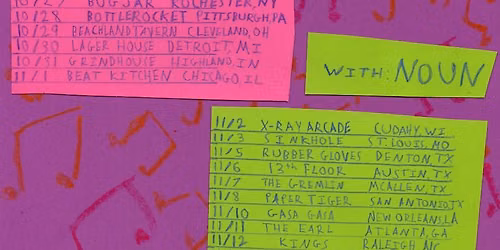 10/27 BUG JAR ROCHESTER, NY
10/28 BOTTLEROCKET PITTSBURGH, PA
10/29 BEACHLAND TAVERN CLEVELAND, OH
10/30 LAGER HOUSE DETROIT, MI
10/31 GRINDHOUSE HIGHLAND, IN
11/1 BEAT KITCHEN CHICAGO, IL
WITH: NOUN
11/2 X-RAY ARCADE CUDAHY, WI
11/3 SINKHOLE ST. LOUIS, MO
11/5 RUBBER GLOVES DENTON, TX
11/6 13TH FLOOR AUSTIN, TX
11/7 THE GREMLIN MCALLEN, TX
11/8 PAPER TIGER SAN ANTONIO, TX
11/10 GASA GASA NEW ORLEANS, LA
11/11 THE EARL ATLANTA, GA
11/12 KINGS RALEIGH, NC